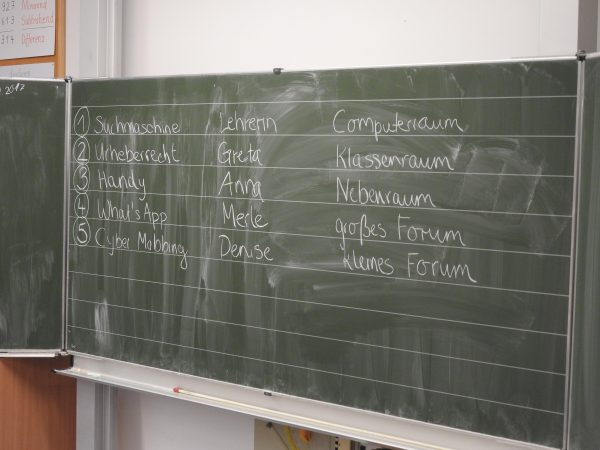 927 Minuend
613 Subtrahend
314 Differenz
2017
① Suchmaschine Lehrerin Computerraum
② Urheberrecht Greta Klassenraum
③ Handy Anna Nebenraum
④ What's App Merle großes Forum
⑤ Cyber Mobbing Denise kleines Forum